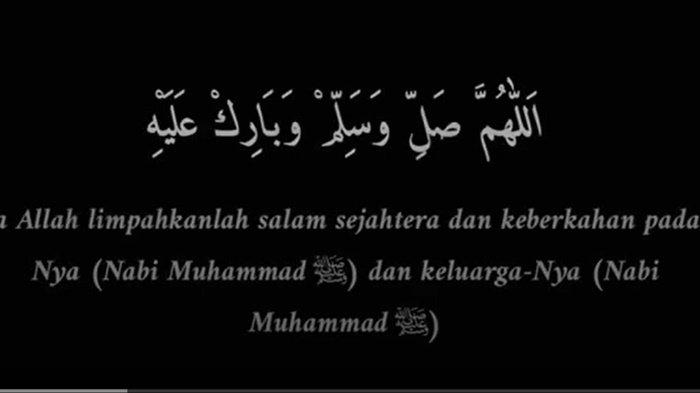 اَللّٰهُمَّ صَلِّ وَسَلِّمْ وَبَارِكْ عَلَيْهِ
Allah limpahkanlah salam sejahtera dan keberkahan pada
Nya (Nabi Muhammad ﷺ) dan keluarga-Nya (Nabi
Muhammad ﷺ)